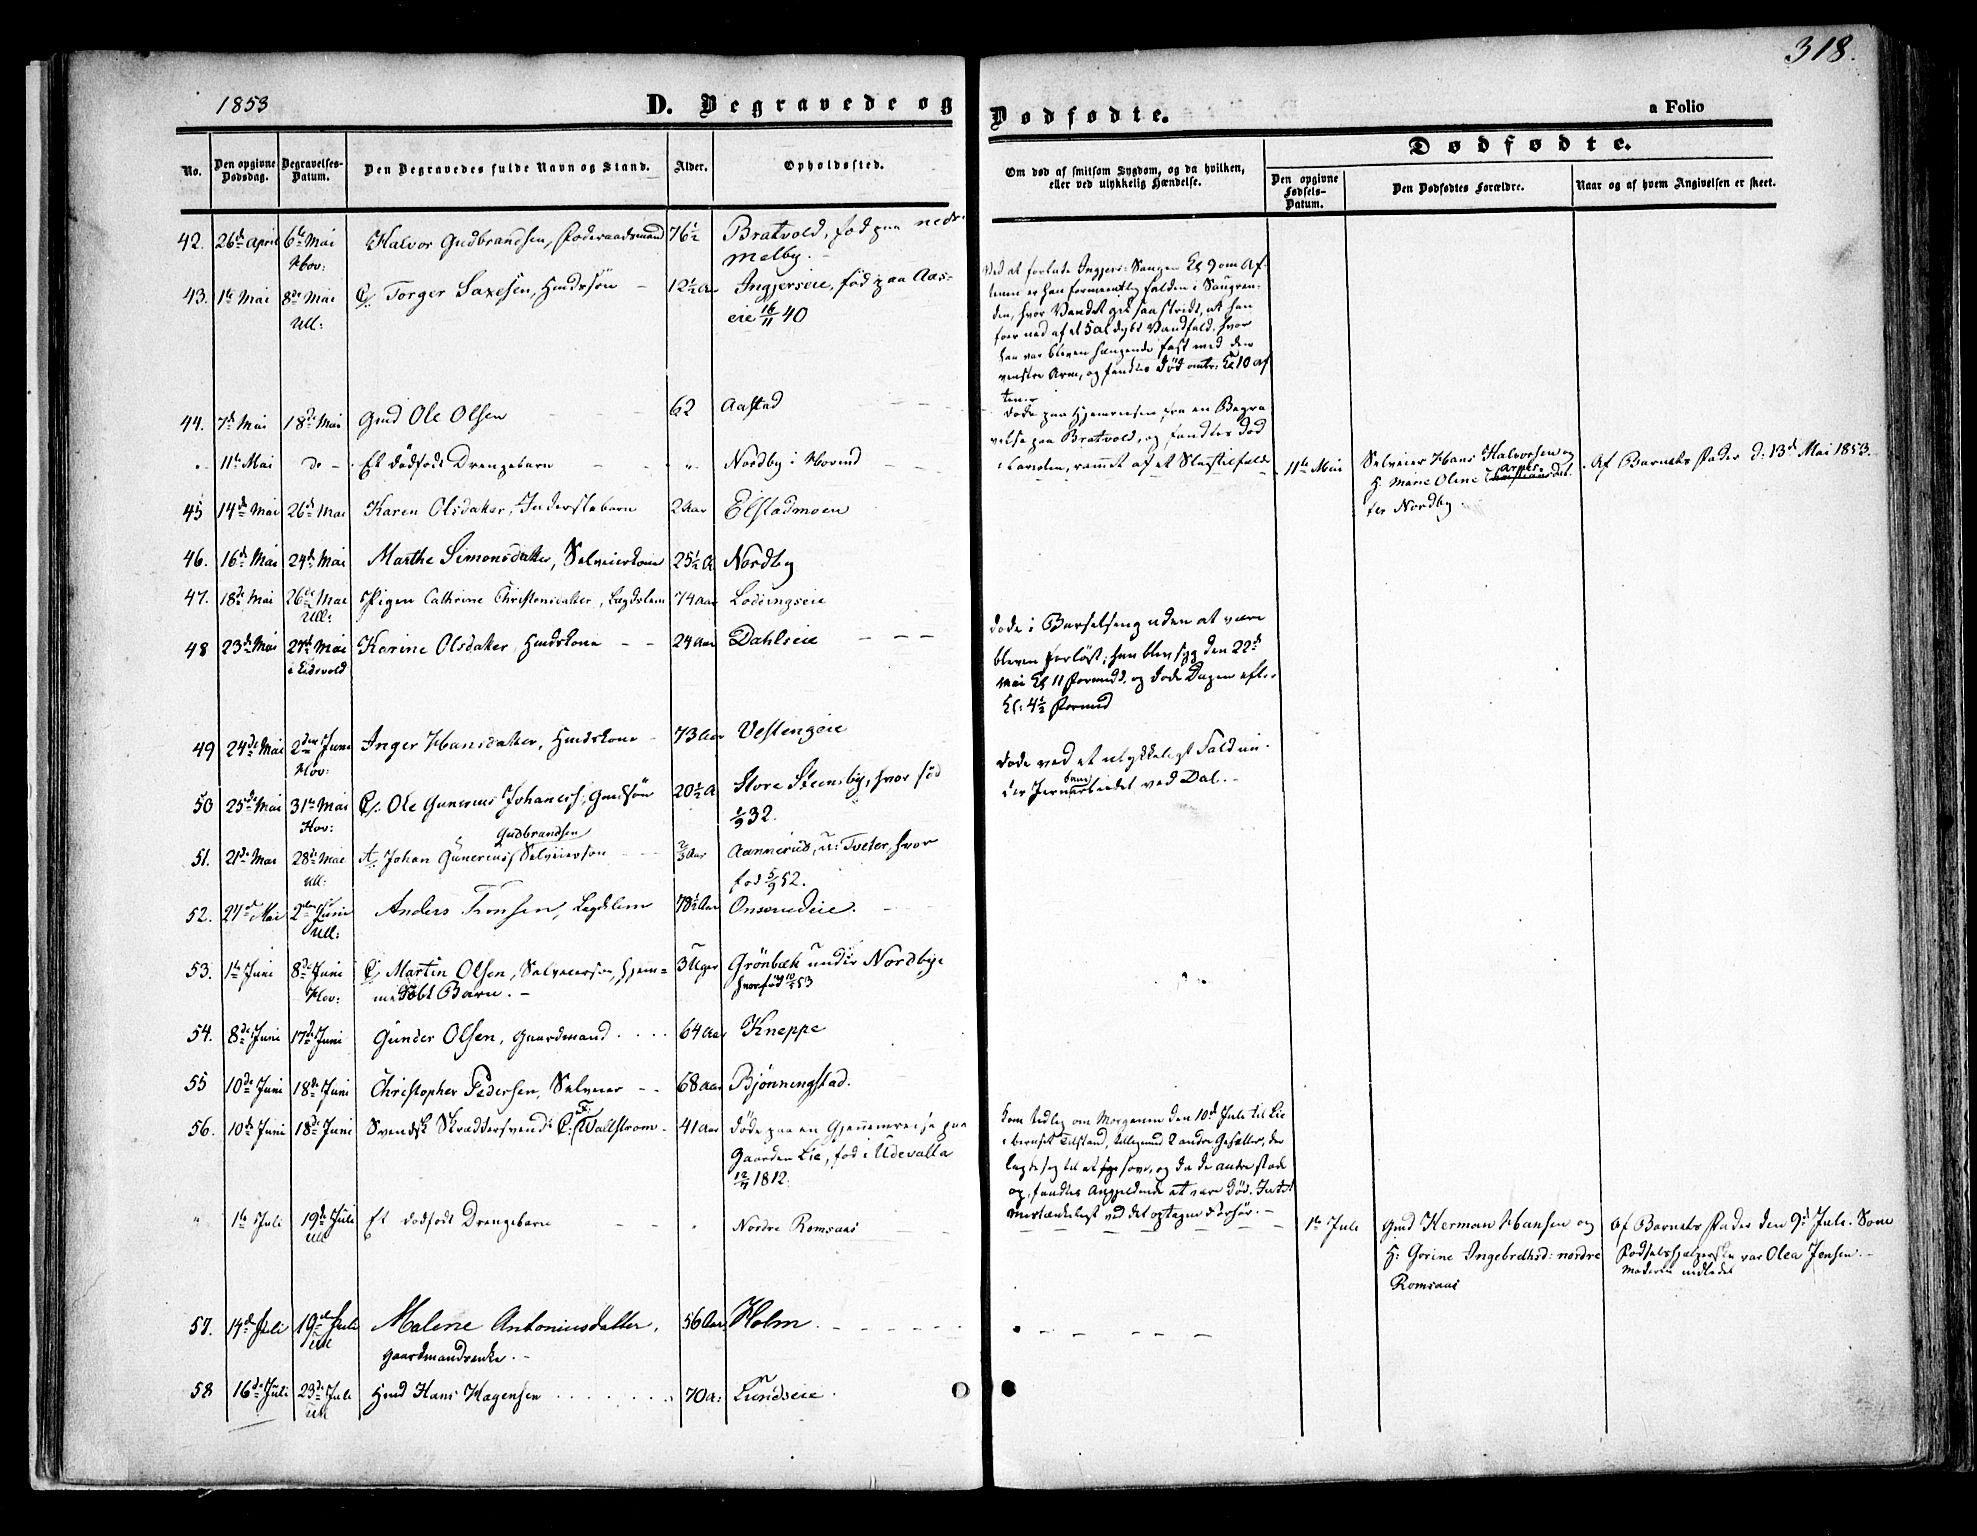 318.
1853
D. Begravede og Dødfødte.
a Folio
No.
Den opgivne Dødsdag.
Begravelses-Datum.
Den Begravedes fulde Navn og Stand.
Alder.
Opholdssted.
Om død af smitsom Sygdom, og da hvilken, eller ved ulykkelig Hændelse.
Dødfødte.
Den opgivne Fødsels-Datum.
Den Dødfødtes Forældre.
Naar og af hvem Angivelsen er skeet.
42. 26de April 6te Mai Halvor Gudbrandsen, Føderaadsmand 76½ Bratvold, fød paa nedr
Hov: melby.
43. 1te Mai 8de Mai C. Torger Saxesen, Huusssøn 12½ Aar Ingjerseie, fød paa Aas-
Ull: eie 16/11 40
Ved at forlade Ingjers: Saugen Kl 9 om Af-
tenen er han formeentlig falden i Saugren-
den, hvor Vandet gik saa stridt, at han
foer ned af et 5 al dybt Vandfald, hvor
han var bleven hængende fast med den
venstre Arm, og fandtes død omtr: Kl 10 Af
ten.
44. 7de Mai 18de Mai Gmd Ole Olsen 62 Aastad
døde paa Hjemreisen fra en Begra
velse paa Bratvold, og fandtes død
i Carriolen, rammet af et Slagtilfælde
" 11te Mai do Et dødfødt Drengebarn " Nordby i Hovind
11te Mai Selveier Hans Halvorsen og
H: Marie Oline Arnes
ter Nordby
Af Barnets Fader d: 13de Mai 1853.
45 14de Mai 26de Mai Karen Olsdatter, Inderstebarn 2 Aar Elstadmoen
46. 16de Mai 24de Mai Marthe Simonsdatter, Selveierkone 25½ A Nordby
47. 18de Mai 26de Mai Pigen Cathrine Christensdatter, Lægdslem 74 Aar Lodingseie
Ull:
48 23de Mai 27de Mai Karine Olsdatter, Huuskone 24 Aar Dahlseie
i Eidsvold
døde i Barselseng uden at være
bleven forløst; hun blev syg den 22de
Mai Kl 11 Formidd. og døde Dagen eft.
Kl: 4½ Formid
49 24de Mai 2den Juni Inger Hansdatter, Huuskone 73 Aar Vestengeie
Hov:
50 25de Mai 31te Mai C. Ole Gunerius Johaness, Gmdsøn 20½ A Store Steensby, hvor fød
Hov: 1/9 32.
døde ved et ulykkeligt Fald un-
der Jernbanearbeidet ved Dal.
51. 21de Mai 28de Mai A. Johan Gunerius Gudbrandsen Selveiersøn 2/3 Aar Aannerud, u: Tveter, hvor
Ull: fød 5/9 52.
52. 27de Mai 2den Juni Anders Tronsen, Lægdslem 78½ Aar Onsrudeie.
Ull:
53. 1te Juni 8de Juni C. Martin Olsen, Selveiersøn, hjem- 3 Uger Grönbæk under Nordbye
Hov: medøbt Barn. hvor fød 10/5 53
54. 8de Juni 17de Juni Gunder Olsen, Gaardmand 64 Aar Kneppe
55 10de Juni 18de Juni Christopher Pedersen, Selveier 68 Aar Bjønningstad.
56. 10de Juni 18de Juni Svensk Skræddersvend C. F. Wallstrøm 41 Aar døde paa en Gjennemreise paa
Gaarden Lie, fød i Udevalla
12/11 1812.
Kom tidlig om Morgenen den 10de Juli til Lie
i beruset Tilstand, tilligemed 2 andre Gesæller, der
lagde sig til at sove, og da de andre stode
op, fandtes Angjeldende at være død. Intet
mistænkeligt ved det optagne Forhør.
" 1te Juli 19de Juli Et dødfødt Drengebarn " Nordre Romsaas
Ull
1te Juli Gmd Herman Hansen og
H: Gorine Ingebrethsd: nordre
Romsaas
Af Barnets Fader den 9de Juli. Som
Fødselshjælperske var Olea Jensen.
57. 14de Juli 19de Juli Malene Antoniusdatter, 56 Aar Holm
Ull Gaardmandsenke.
58 16de Juli 23de Juli Hmd Hans Hagensen 70 A: Lundseie
Ull